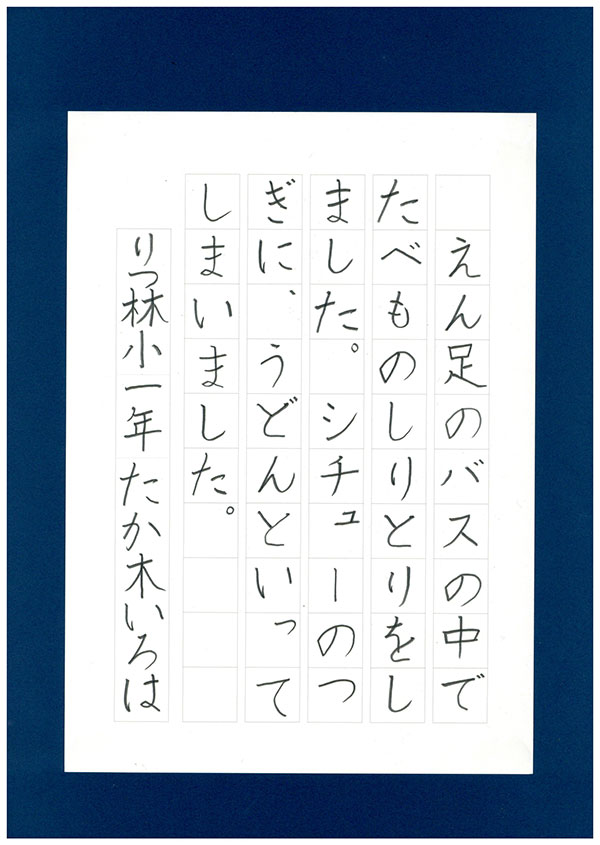 えん足のバスの中で
たべものしりとりをし
ました。シチューのつ
ぎに、うどんといって
しまいました。
りつ林小一年たか木いろは